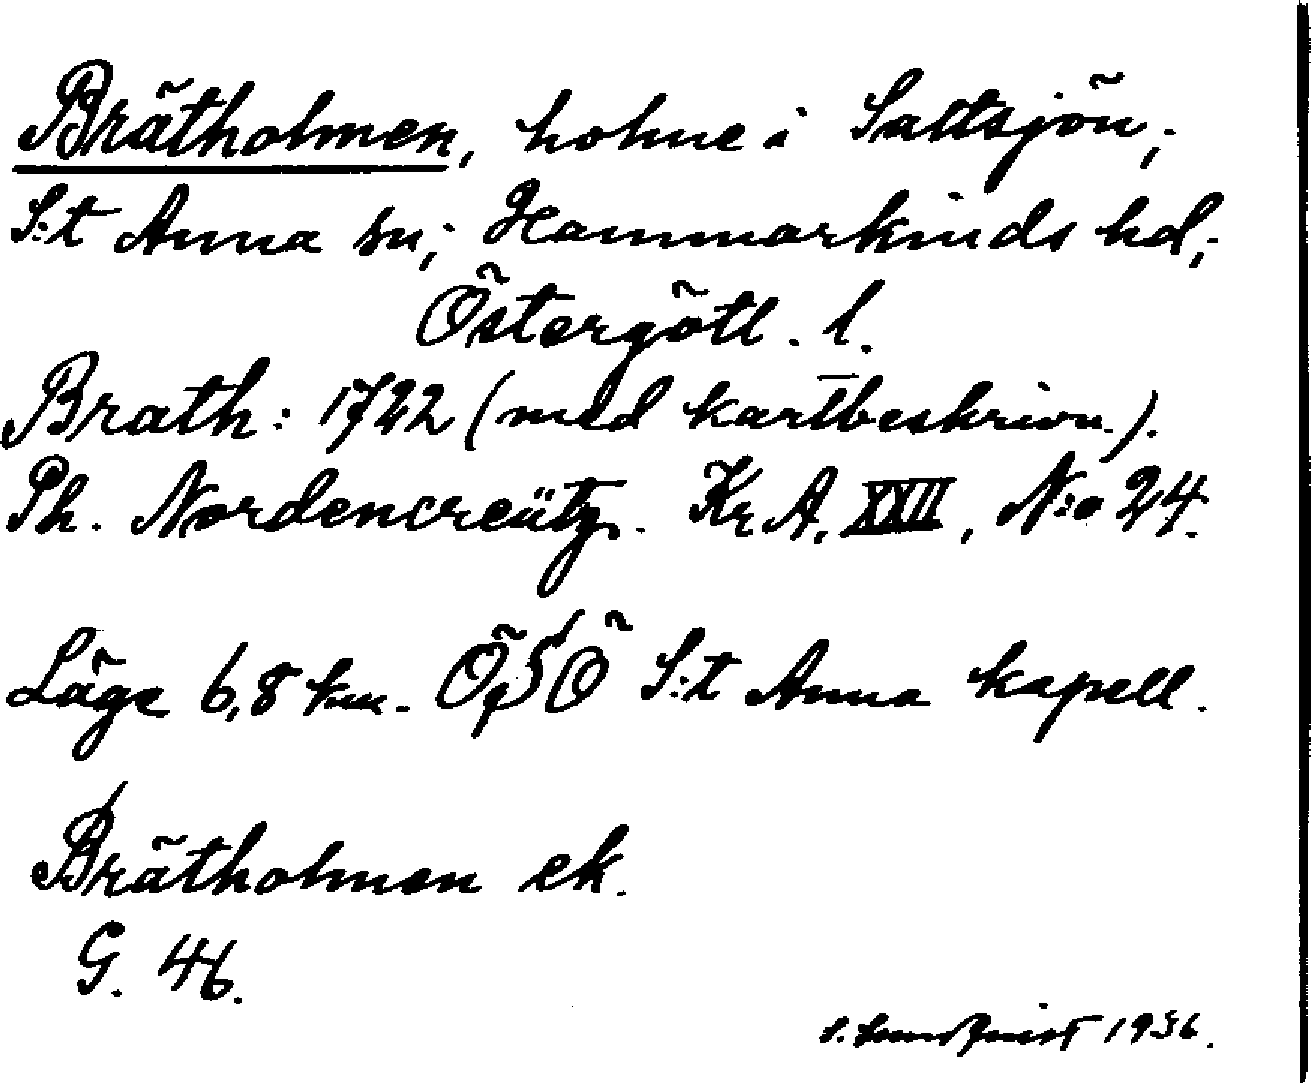 Brätholmen, holme i Saltsjön;
S:t Anna sn; Hammarkinds hd;
Östergötl. l.
Brath: 1722 (med kartbeskrivn.).
Ph. Nordencreütz. Kr. A. XXII, N:o 24.
Läge 6,8 km. Ö, S Ö S:t Anna kapell.
Brätholmen ek.
G. 46.
S. Lundqvist 1936.